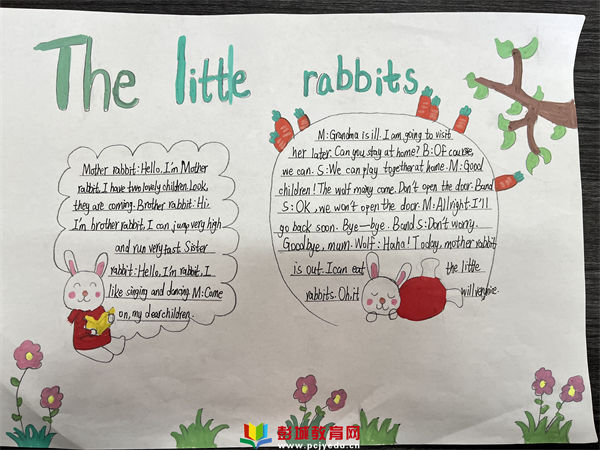 The little rabbits
Mother rabbit: Hello, I'm Mother
rabbit. I have two lovely children. Look,
they are coming. Brother rabbit: Hi,
I'm brother rabbit, I can jump very high
and run very fast Sister
rabbit: Hello, I'm rabbit, I
like singing and dancing. M: Come
on, my dear children.
M: Grandma is ill. I am going to visit
her later. Can you stay at home? B: Of course,
we can. S: We can play together at home. M: Good
children! The wolf many come. Don't open the door. Band
S: OK, we won't open the door. M: All right. I'll
go back soon. Bye-bye. Band S: Don't worry.
Goodbye, mum. Wolf: Haha! Today, mother rabbit
is out. I can eat the little
rabbits. Oh, it will very
彭城教育网
www.pcjyedu.cn